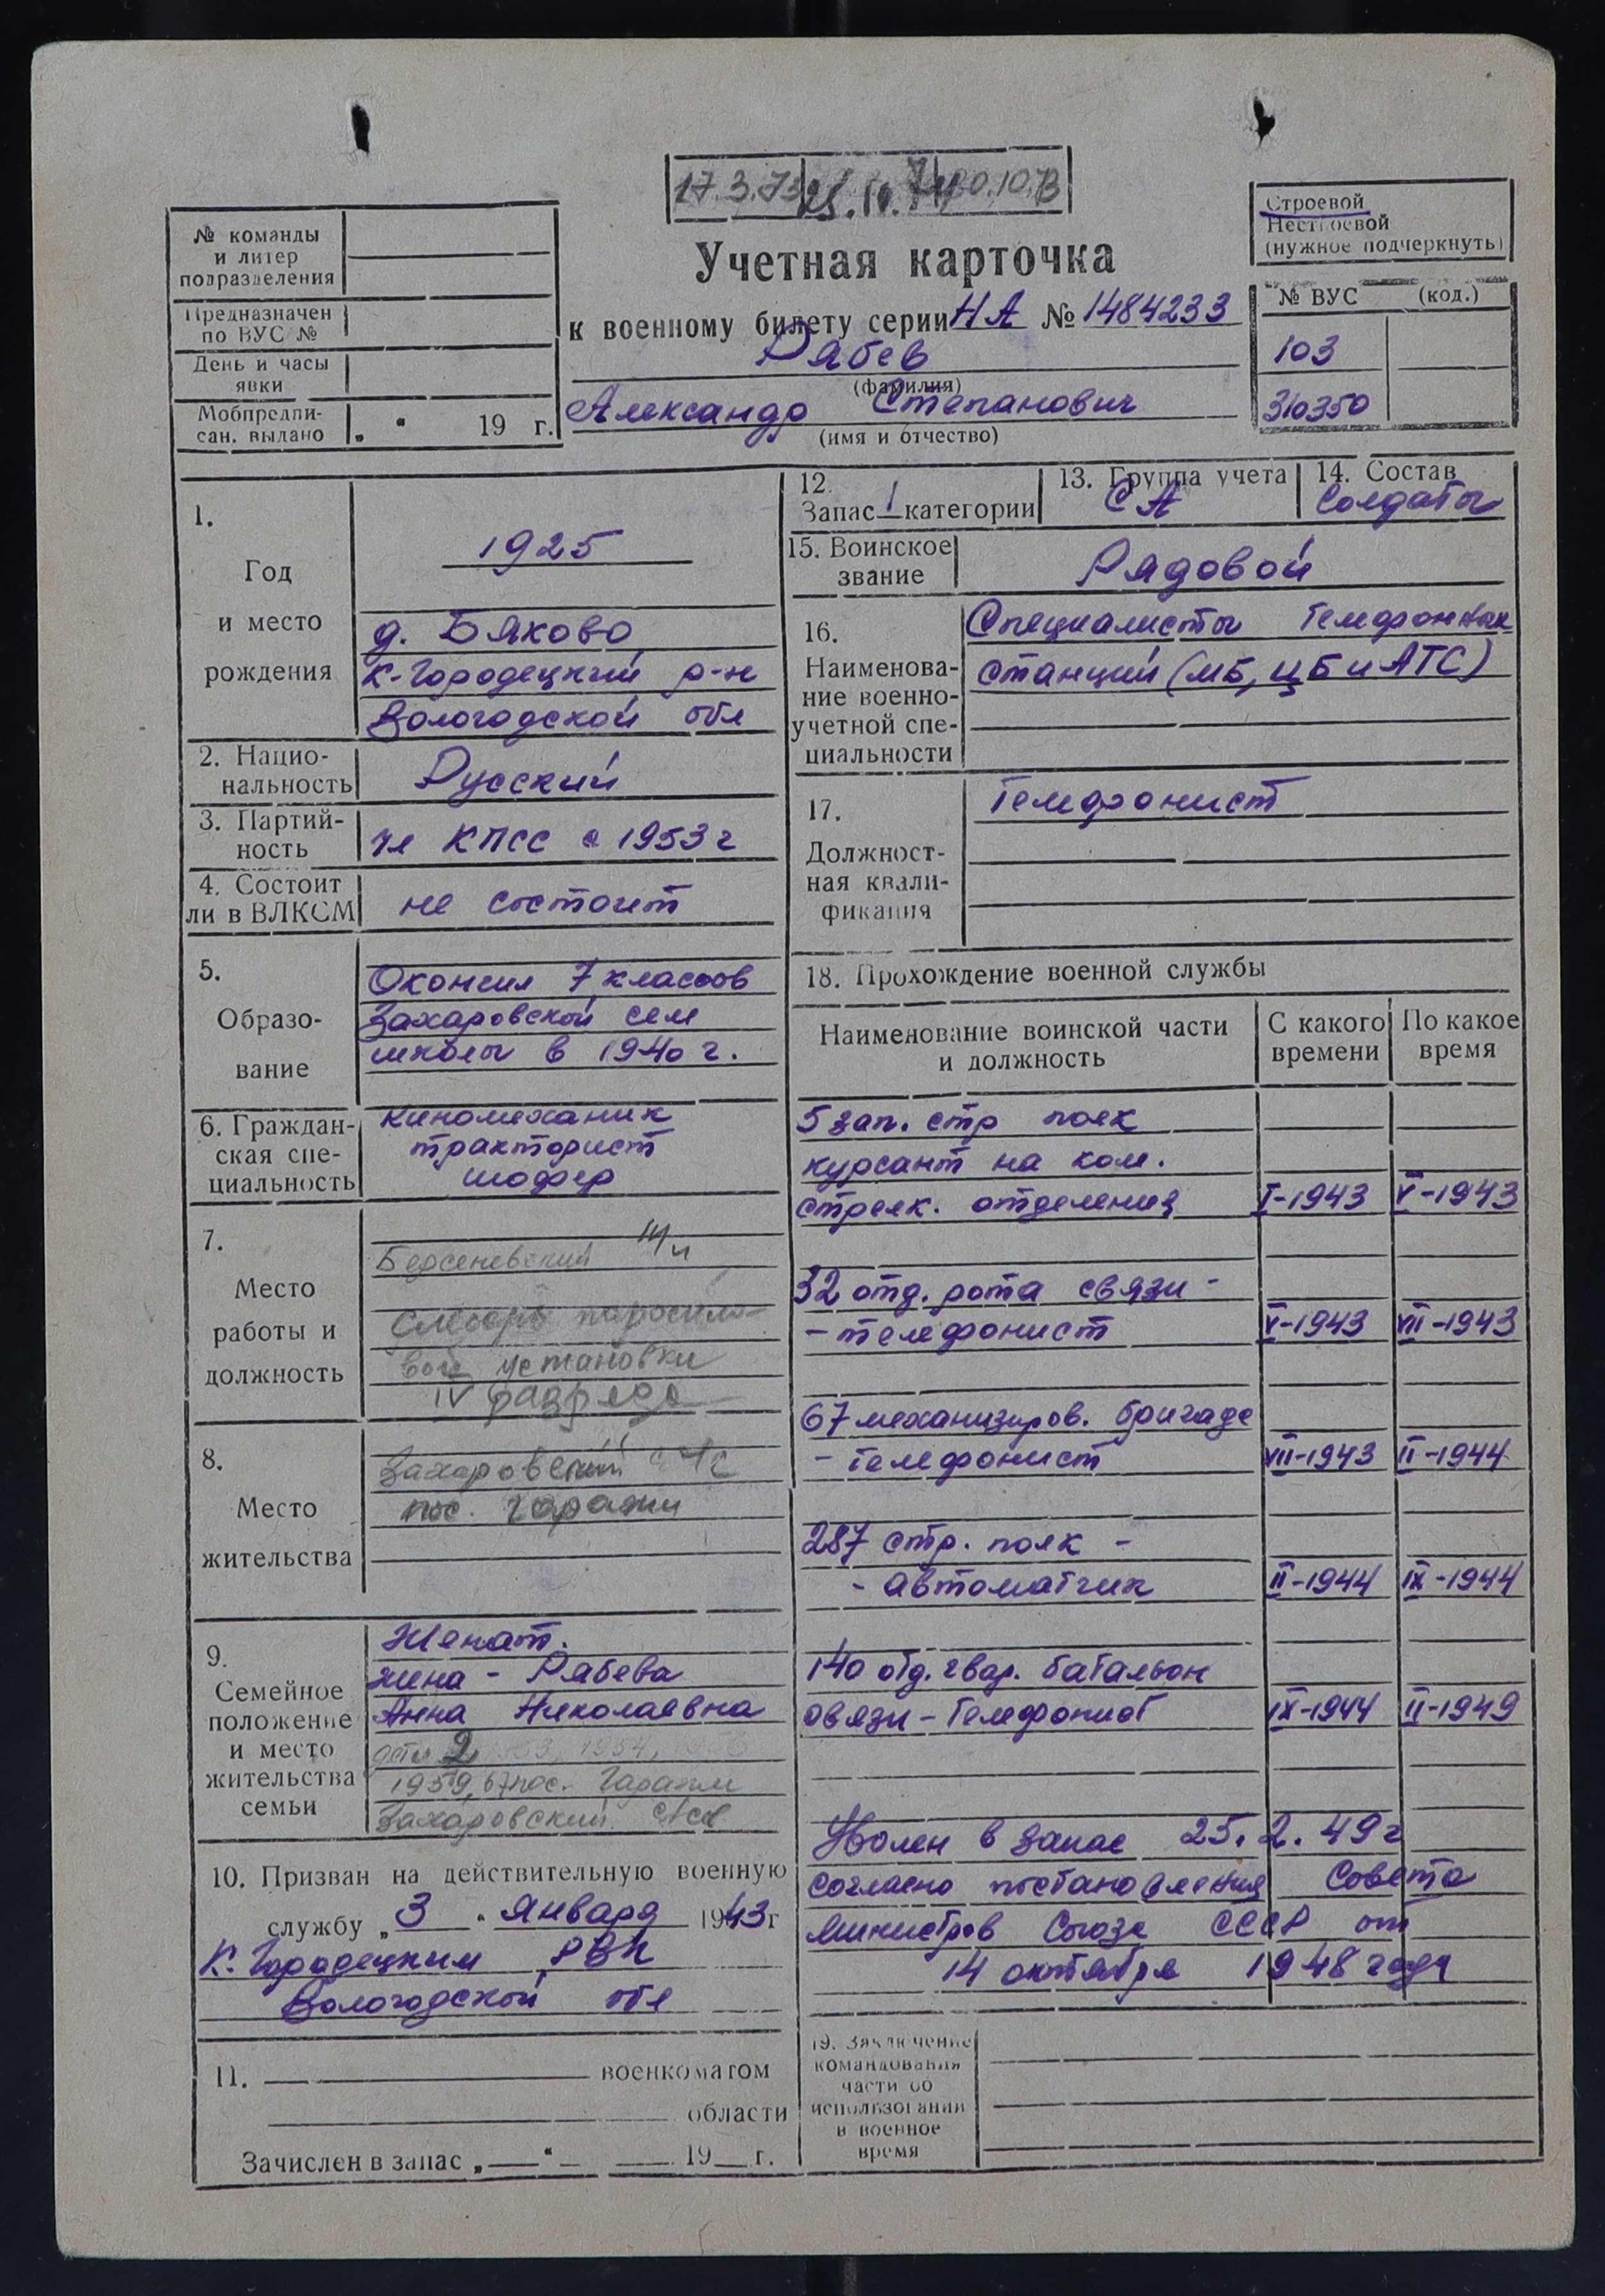 17.3.73
30.10.73
№ команды
и литер
подразделения
Предназначен
по ВУС №
День и часы
явки
Мобпредпи-
сан. выдано „ “ 19 г.
Учетная карточка
к военному билету серии НА № 1484233
Рябев
(фамилия)
Александр Степанович
(имя и отчество)
Строевой
Нестроевой
(нужное подчеркнуть)
№ ВУС (код.)
103
310350
1.
Год
и место
рождения
1925
д. Бяково
К-Городецкий р-н
Вологодской обл
2. Нацио-
нальность
Русский
3. Партий-
ность
чл КПСС с 1953 г
4. Состоит
ли в ВЛКСМ
не состоит
5.
Образо-
вание
Окончил 7 классов
Захаровской сем
школы в 1940 г.
6. Граждан-
ская спе-
циальность
Киномеханик
тракторист
шофер
7.
Место
работы и
должность
Берсеневский
слесарь паросило-
вой установки
IV разряда
8.
Место
жительства
Захаровский с/с
пос. Гаражи
9.
Семейное
положение
и место
жительства
семьи
Женат.
жена - Рябева
Анна Николаевна
дети 2
1959, 67 пос. Гаражи
Захаровский
10. Призван на действительную военную
службу „3“ Января 1943 г
К. Городецким РВК
Вологодской обл
11. военкоматом
области
Зачислен в запас „ “ 19 г.
12.
Запас 1 категории
13. Группа учета
СА
14. Состав
Солдаты
15. Воинское
звание
Рядовой
16.
Наименова-
ние военно-
учетной спе-
циальности
Специалисты телефонных
станций (МБ, ЦБ и АТС)
17.
Должност-
ная квали-
фикация
Телефонист
18. Прохождение военной службы
Наименование воинской части
и должность
С какого
времени
По какое
время
5 зап. стр полк
курсант на ком.
стрелк. отделения I-1943 V-1943
32 отд. рота связи -
- телефонист V-1943 VII-1943
67 механизиров. бригаде
- телефонист VII-1943 II-1944
287 стр. полк -
- автоматчик II-1944 IX-1944
140 отд. гвар. батальон
связи - телефонист IX-1944 II-1949
Уволен в запас 25.2.49 г
согласно постановления Совета
Министров Союза СССР от
14 октября 1948 года
19. Заключение
командования
части об
использовании
в военное
время